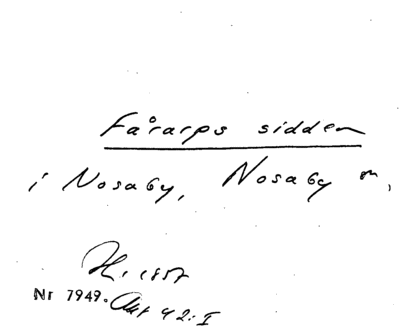 Fårarps sidden
i Nosaby, Nosaby
H. 1857
Nr 7949. Akt 42:I